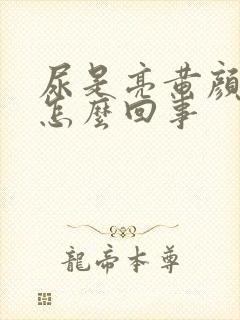 尿是亮黃顏
怎麼回事
龍帝本尊